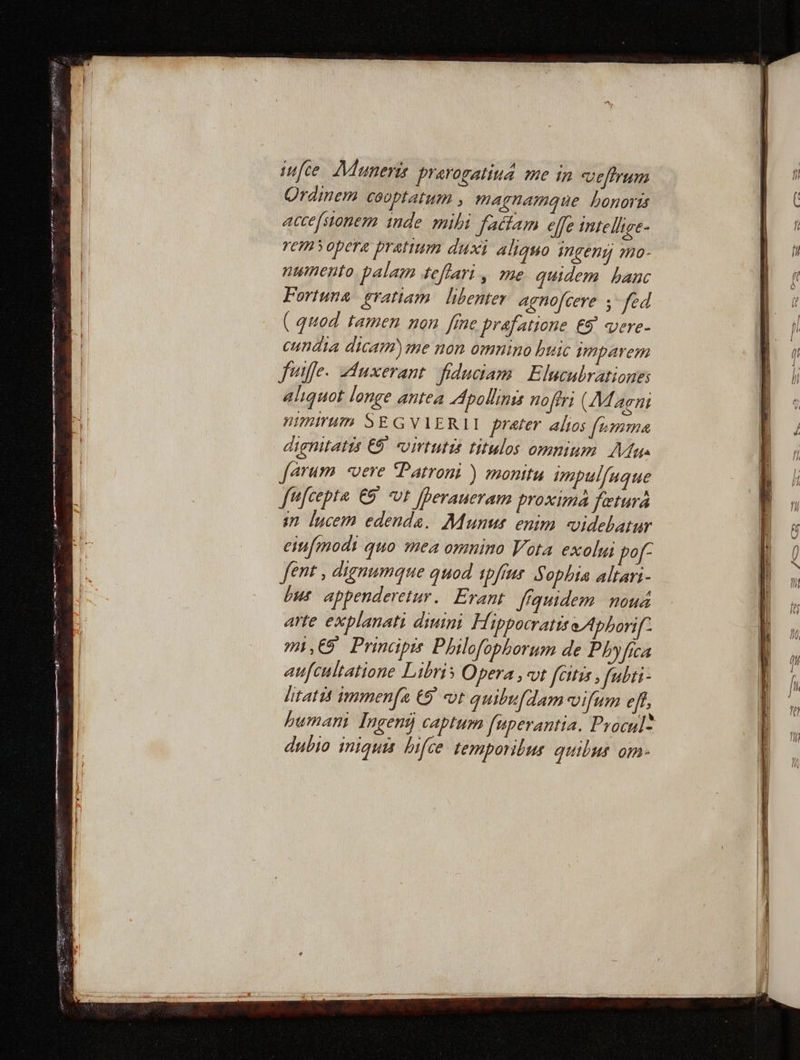 iuſce Muneris prærogatiuâ me in veſtrum
Ordinem cooptatum, magnamque honoris
acceſsionem inde mihi factam eſſe intellige-
rem; operæ pratium duxi aliquo ingenij mo-
numento palam teſtari, me quidem hanc
Fortunæ gratiam libenter agnoſcere; ſed
(quod tamen non ſine præfatione & vere-
cundia dicam) me non omnino huic imparem
fuiſſe. Auxerant fiduciam Elucubrationes
aliquot longe antea Apollinis noſtri (Magni
nimirum SEGVIERII præter alios ſumma
dignitatis & virtutis titulos omnium Mu-
ſarum vere Patroni) monitu impulſuque
ſuſceptæ & vt ſperaueram proximâ fœturâ
in lucem edendæ. Munus enim videbatur
eiuſmodi quo mea omnino Vota exolui poſ-
ſent, dignumque quod ipſius Sophiæ altari-
bus appenderetur. Erant ſiquidem nouâ
arte explanati diuini Hippocratis Aphoriſ-
mi, & Principis Philoſophorum de Phyſica
auſcultatione Libri; Opera, vt ſcitis, ſubti-
litatis immenſæ & vt quibuſdam viſum eſt,
humani Ingenij captum ſuperantia. Procul-
dubio iniquis hiſce temporibus quibus om-